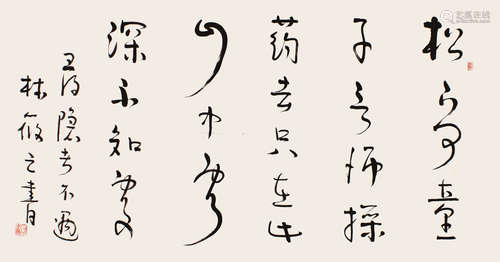 松下问童
子言师採
药去只在此
山中云
深不知处
寻隐者不遇
林筱之书